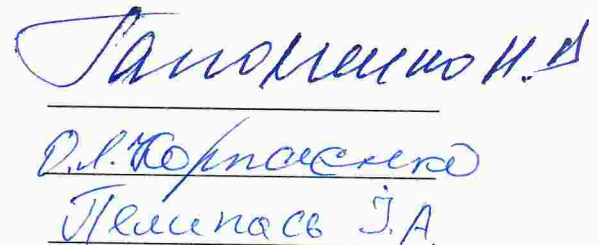 Гапоненко Н.В
О.Л. Корпаченко
Пелипась І.А.